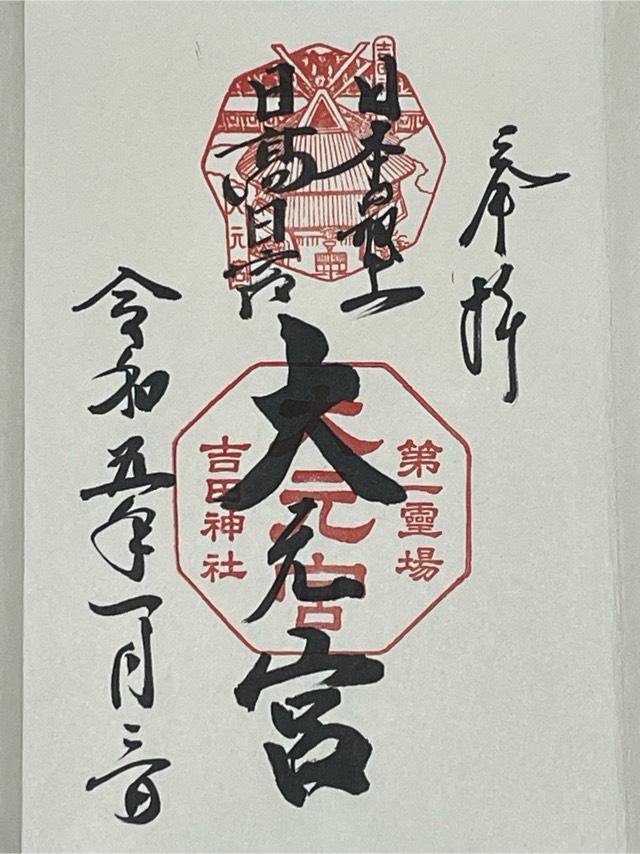 奉拝
日本最上
日高日宮
大元宮
第一靈場
大元宮
吉田神社
令和五年一月三日